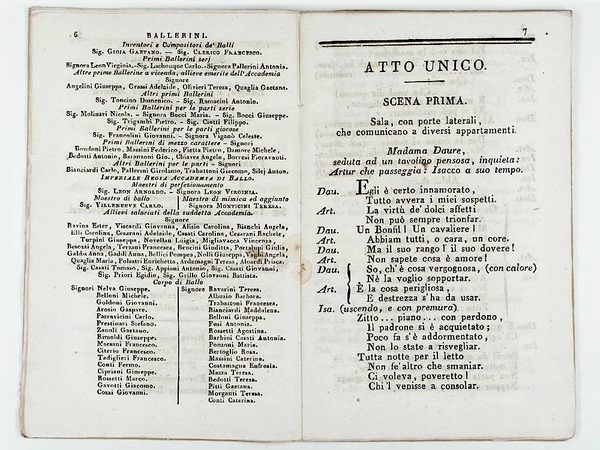 6
BALLERINI.
Inventori e Compositori de' Balli
Sig. GIOJA GAETANO. — Sig. CLERICO FRANCESCO.
Primi Ballerini serj
Signora Leon Virginia.-Sig. Lachouque Carlo.-Signora Pallerini Antonia.
Altre prime Ballerine a vicenda, allieve emerite dell'Accademia
Signore
Angelini Giuseppa, Grassi Adelaide, Olivieri Teresa, Quaglia Gaetana.
Altri primi Ballerini
Sig. Toncino Domenico. — Sig. Ramacini Antonio.
Primi Ballerini per le parti serie
Sig. Molinari Nicola. - Signora Bocci Maria. - Sig. Bocci Giuseppe.
Sig. Trigambi Pietro. — Sig. Ciotti Filippo.
Primi Ballerini per le parti giocose
Sig. Francolini Giovanni. - Signora Viganò Celeste.
Primi Ballerini di mezzo carattere — Signori
Bondoni Pietro, Massini Federico, Fietta Pietro, Damore Michele,
Bedotti Antonio, Baranzoni Gio., Chiaves Angelo, Borresi Fioravanti.
Altri Ballerini per le parti - Signori
Bianciardi Carlo, Pallerini Girolamo, Trabattoni Giacomo, Silej Anton.
IMPERIALE REGIA ACCADEMIA DI BALLO.
Maestri di perfezionamento
Sig. LEON ARNOLDO. — Signora LEON VIRGINIA.
Maestro di ballo
Sig. VILLENEUVE CARLO.
Maestra di mimica ed aggiunto
Signora MONTICINI TERESA.
Allievi salariati della suddetta Accademia.
Signore
Ravina Ester, Viscardi Giovanna, Alisio Carolina, Bianchi Angela,
Elli Carolina, Cesarani Adelaide, Casati Carolina, Cesarani Rachele,
Turpini Giuseppa, Novellau Luigia, Migliavacca Vincenza,
Bescazi Angela, Terzani Francesca, Bencini Giuditta, Portalupi Giulia,
Gabba Anna, Gaddi Anna, Bellici Pompea, Nolli Giuseppa, Vaghi Angela,
Quaglia Maria, Polastri Enrichetta, Ardemagni Teresa, Aleardi Prisca.
Sig. Casati Tomaso, Sig. Appiani Antonio, Sig. Casati Giovanni,
Sig. Priori Egidio, Sig. Grillo Giovanni Battista.
Corpo di Ballo
Signori Nelva Giuseppe.
Belloni Michele.
Goldoni Giovanni.
Arosio Gaspare.
Parravicini Carlo.
Prestinari Stefano.
Zanoli Gaetano.
Rimoldi Giuseppe.
Maesani Francesco.
Citerio Francesco.
Tadiglieri Francesco.
Conti Fermo.
Cipriani Giuseppe.
Rossetti Marco.
Gavotti Giacomo.
Cozzi Giovanni.
Signore Ravarini Teresa.
Albuzio Barbara.
Trabattoni Francesca.
Bianciardi Maddalena.
Belloni Giuseppa.
Fusi Antonia.
Rossetti Agostina.
Barbini Casati Antonia.
Feuzoni Maria.
Bertoglio Rosa.
Massini Caterina.
Costamagna Eufrosia.
Mazza Teresa.
Bedotti Teresa.
Pitti Gaetana.
Morganti Teresa.
Conti Caterina.
7
ATTO UNICO.
SCENA PRIMA.
Sala, con porte laterali,
che comunicano a diversi appartamenti.
Madama Daure,
seduta ad un tavolino pensosa, inquieta:
Artur che passeggia: Isacco a suo tempo.
Dau. Egli è certo innamorato,
Tutto avvera i miei sospetti.
Art. La virtù de' dolci affetti
Non può sempre trionfar.
Dau. Un Bonfil! Un cavaliere!
Art. Abbiam tutti, o cara, un core.
Dau. Ma il suo rango! il suo dovere!
Art. Non sapete cosa è amore!
Dau. So, ch'è cosa vergognosa, (con calore)
Nè la voglio sopportar.
Art. È la cosa perigliosa,
E destrezza s'ha da usar.
Isa. (uscendo, e con premura).
Zitto... piano... con perdono,
Il padrone si è acquietato;
Poco fa s'è addormentato,
Non lo state a risvegliar.
Tutta notte per il letto
Non fe' altro che smaniar.
Ci voleva, poveretto!
Chi 'l venisse a consolar.